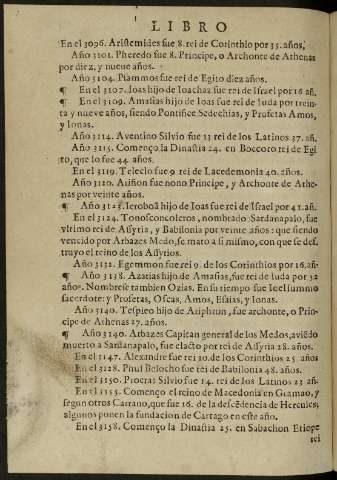 LIBRO
En el 3096. Aristemides fue 8. rei de Corinthio por 35. años,
Año 3101. Pheredo fue 8. Principe, o Archonte de Athenas
por diez, y nueue años.
Año 3104. Piammos fue rei de Egito diez años.
¶ En el 3107. Ioas hijo de Ioachaz fue rei de Israel por 16 añ.
¶ En el 3109. Amasias hijo de Ioas fue rei de Iuda por trein
ta y nueve años, siendo Pontifice Sedechias, y Profetas Amos,
y Ionas.
Año 3114. Aventino Silvio fue 13 rei de los Latinos 37. añ.
Año 3115. Començo la Dinastia 24. en Boccoro rei de Egi
to, que lo fue 44. años.
En el 3119. Teleclo fue 9. rei de Lacedemonia 40. años.
Año 3120. Ariñon fue nono Principe, y Archonte de Athe-
nas por veinte años.
¶ Año 312 Ieroboã hijo de Ioas fue rei de Israel por 41. añ.
En el 3124. Tonosconcoleros, nombrado Sardanapalo, fue
vltimo rei de Assyria, y Babilonia por veinte años: que siendo
vencido por Arbazes Medo, se mato a si mismo, con que se des
truyo el reino de los Assyrios.
Año 3132. Egemmon fue rei 9. de los Corinthios por 16. añ.
¶ Año 3138. Azatias hijo de Amasias, fue rei de Iuda por 32
años. Nombrese tambien Ozias. En su tiempo fue Ieel summo
sacerdote: y Profetas, Oseas, Amos, Esaias, y Ionas.
Año 3140. Tespieo hijo de Ariphron, fue archonte, o Prin-
cipe de Athenas 27. años.
¶ Año 3140. Arbazes Capitan general de los Medos, aviedo
muerto a Sardanapalo, fue electo por rei de Assyria 28. años.
En el 3147. Alexandre fue rei 10. de los Corinthios 25 años
En el 3128. Phul Belocho fue rei de Babilonia 48. años.
En el 3150. Procras Silvio fue 14. rei de los Latinos 23 añ.
En el 3155. Començo el reino de Macedonia en Gramao, y
segun otros Carrano, que fue 16. de la descẽdencia de Hercules,
algunos ponen la fundacion de Cartago en este año.
En el 3158. Començo la Dinastia 25. en Sabachon Etiope
rei